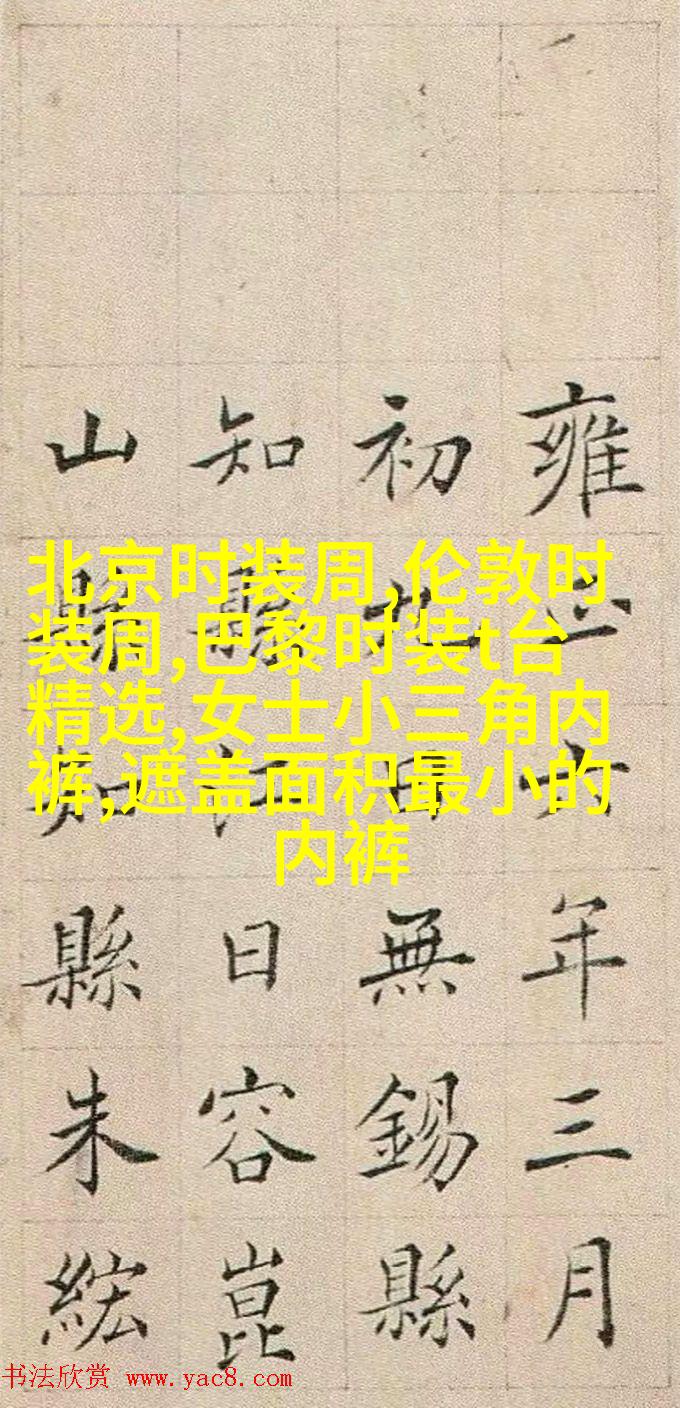 雍正年三月
初九日無錫縣
知縣江日容崑
山縣知縣朱紘
北京时装周,伦敦时
装周,巴黎时装t台
精选,女士小三角内
裤,遮盖面积最小的
内裤
书法欣赏 www.yac8.com